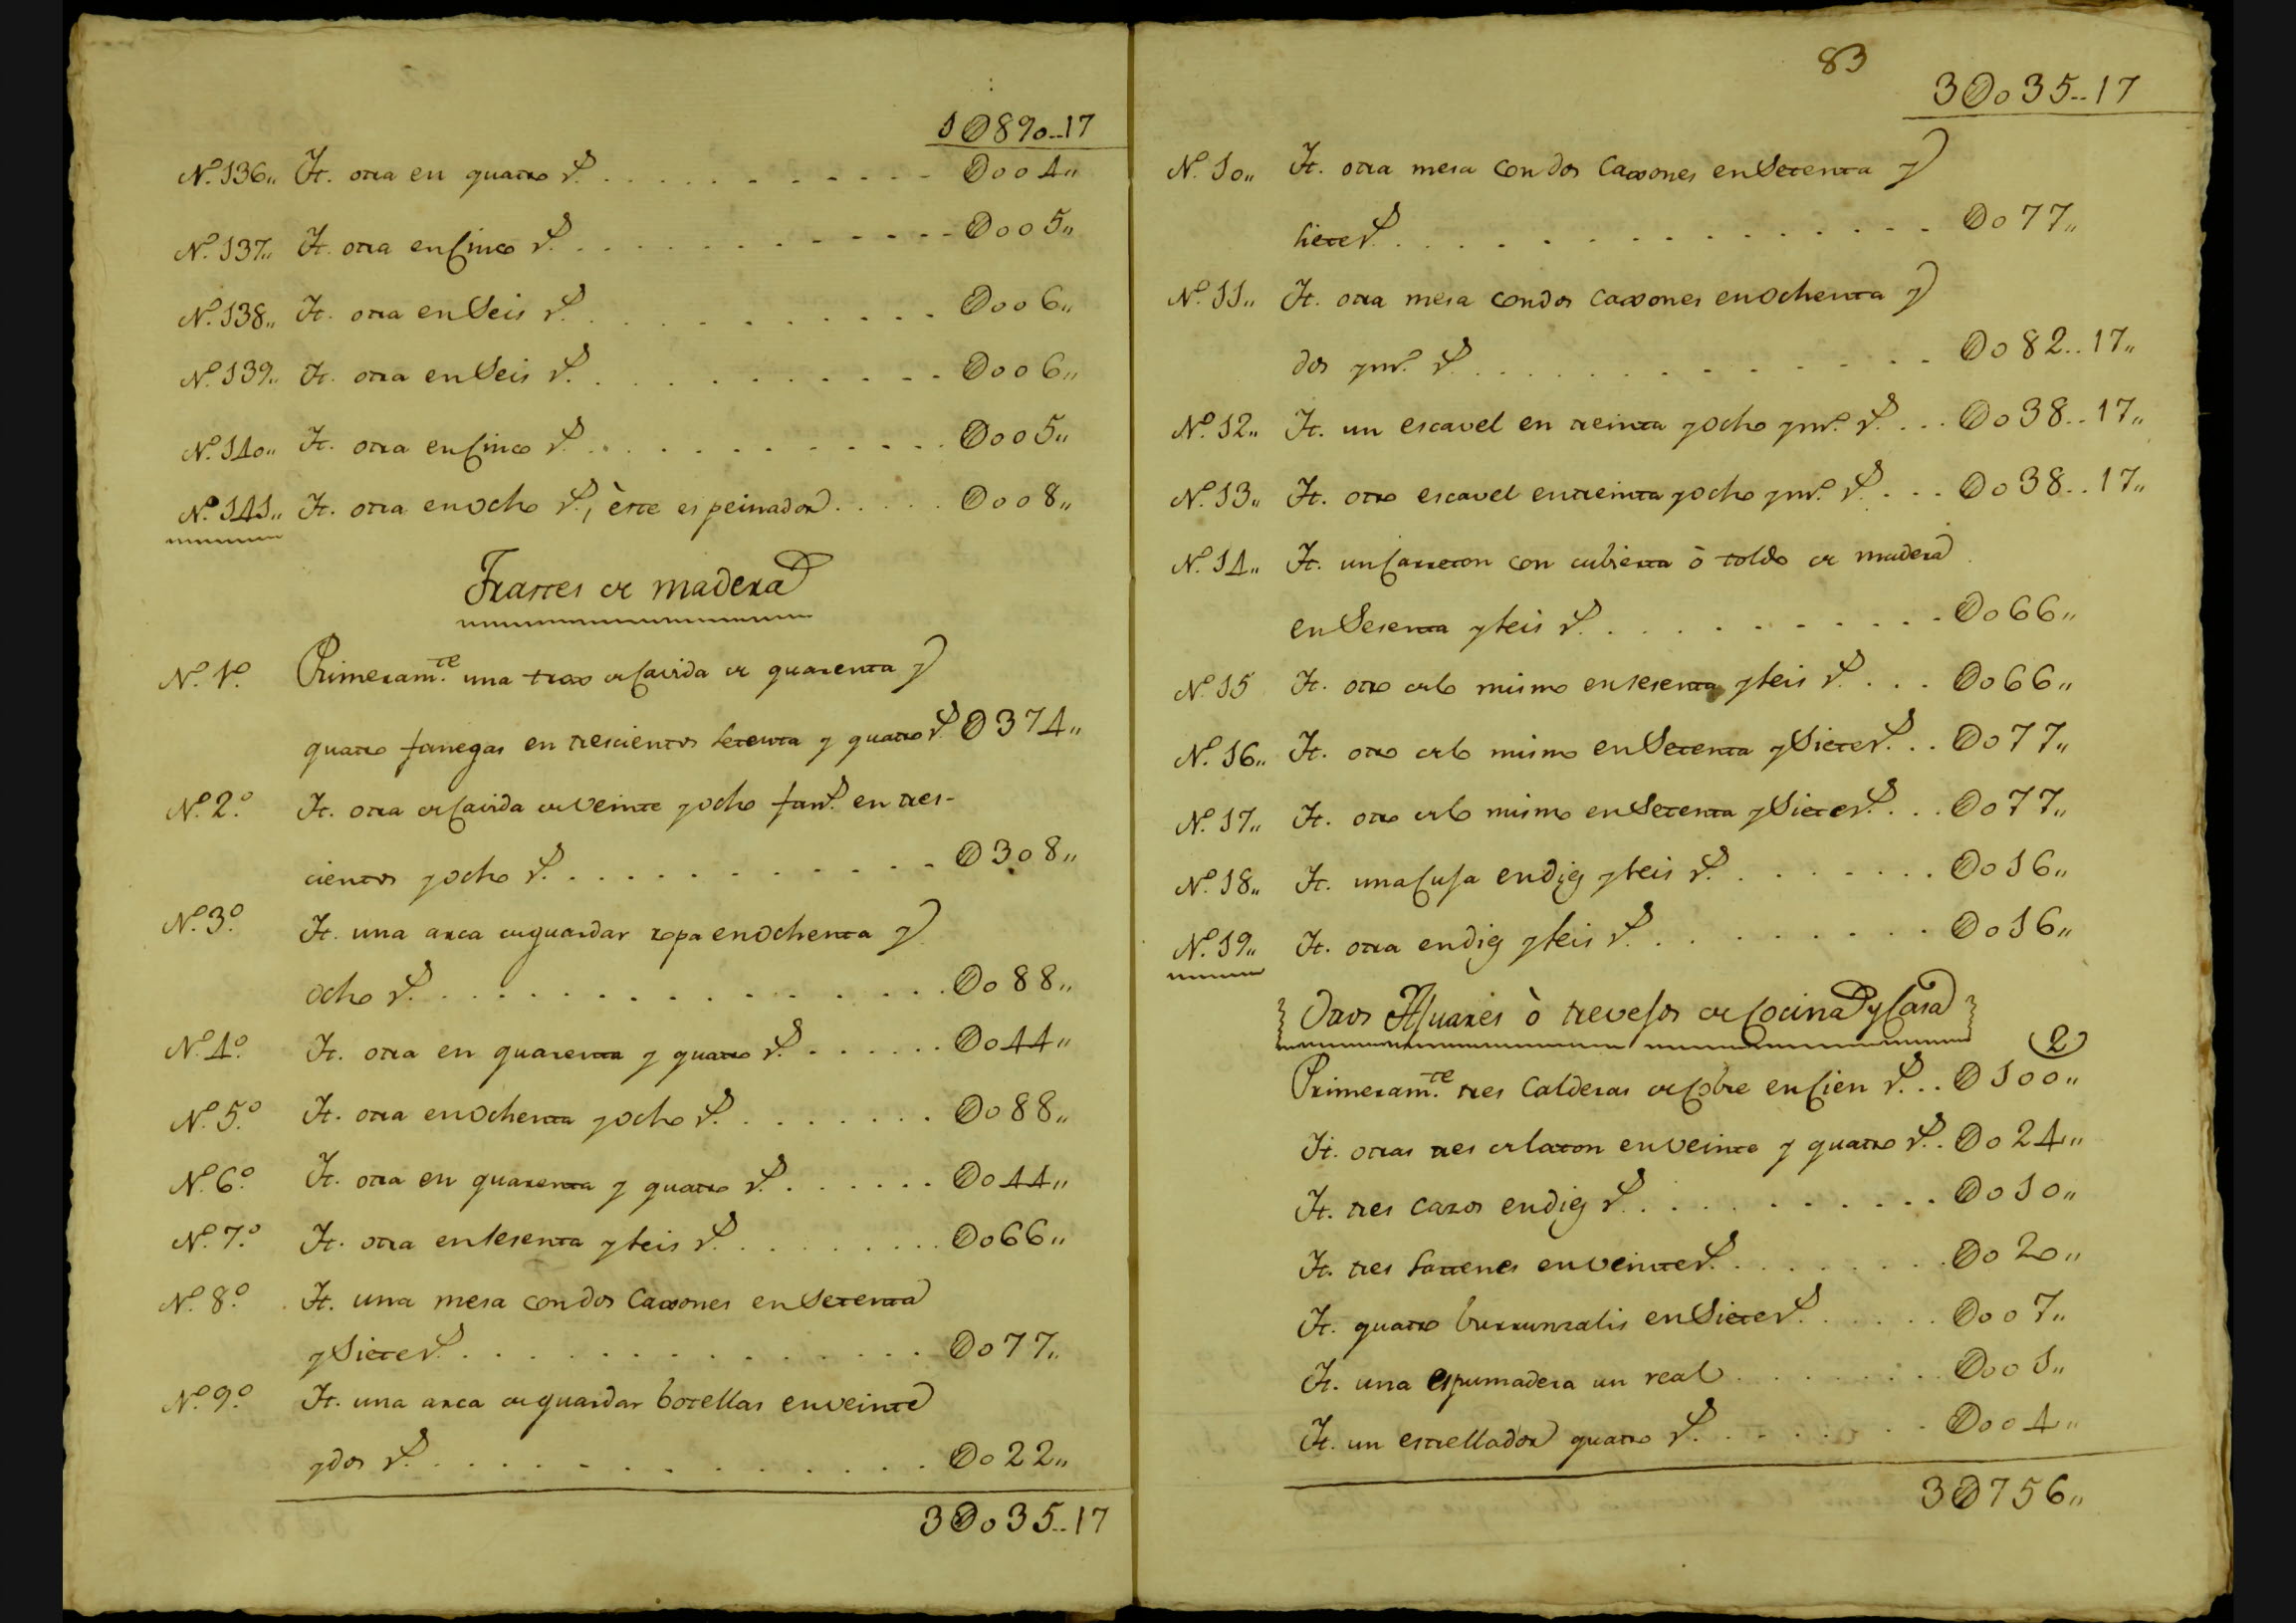 1Ø890..17
N.º 136,, It. otra en quatro r.s . . . Ø004,,
N.º 137,, It. otra en Cinco r.s . . . Ø005,,
N.º 138,, It. otra en Seis r.s . . . Ø006,,
N.º 139,, It. otra en Seis r.s . . . Ø006,,
N.º 140,, It. otra en Cinco r.s . . . Ø005,,
N.º 141,, It. otra en ocho r.s, èste es peinador . . . Ø008,,
Trastes de madera
N.º 1.º Primeram.te una trox de Cavida de quarenta y
quatro fanegas en trescientos setenta y quatro r.s Ø374,,
N.º 2.º It. otra de Cavida de veinte y ocho fan.s en tres-
cientos y ocho r.s . . . Ø308,,
N.º 3.º It. una arca de guardar ropa en ochenta y
ocho r.s . . . Ø088,,
N.º 4.º It. otra en quarenta y quatro r.s . . . Ø044,,
N.º 5.º It. otra en ochenta y ocho r.s . . . Ø088,,
N.º 6.º It. otra en quarenta y quatro r.s . . . Ø044,,
N.º 7.º It. otra en sesenta y seis r.s . . . Ø066,,
N.º 8.º It. una mesa con dos Caxones en Setenta
y Siete r.s . . . Ø077,,
N.º 9.º It. una arca de guardar botellas en veinte
y dos r.s . . . Ø022,,
3Ø035..17
83
3Ø035..17
N.º 10,, It. otra mesa con dos Caxones en Setenta y
siete r.s . . . Ø077,,
N.º 11,, It. otra mesa con dos Caxones en ochenta y
dos y m.º r.s . . . Ø082..17,,
N.º 12,, It. un escavel en treinta y ocho y m.º r.s . . . Ø038..17,,
N.º 13,, It. otro escavel en treinta y ocho y m.º r.s . . . Ø038..17,,
N.º 14,, It. un Carreton con cubierta ò toldo de madera
en Sesenta y seis r.s . . . Ø066,,
N.º 15 It. otro de lo mismo en sesenta y seis r.s . . . Ø066,,
N.º 16,, It. otro de lo mismo en Setenta y Siete r.s . . Ø077,,
N.º 17,, It. otro de lo mismo en Setenta y Siete r.s . . . Ø077,,
N.º 18,, It. una Cuja en diez y seis r.s . . . Ø016,,
N.º 19,, It. otra en diez y seis r.s . . . Ø016,,
Otros Ajuares ò trevejos de Cocina y Casa
2
Primeram.te tres Calderas de Cobre en Cien r.s . . Ø100,,
It. otras tres de laton en veinte y quatro r.s . Ø024,,
It. tres cazos en diez r.s . . . Ø010,,
It. tres sartenes en veinte r.s . . . Ø020,,
It. quatro burrunzalis en Siete r.s . . . Ø007,,
It. una espumadera un real . . . Ø001,,
It. un estrellador quatro r.s . . . Ø004,,
3Ø756,,